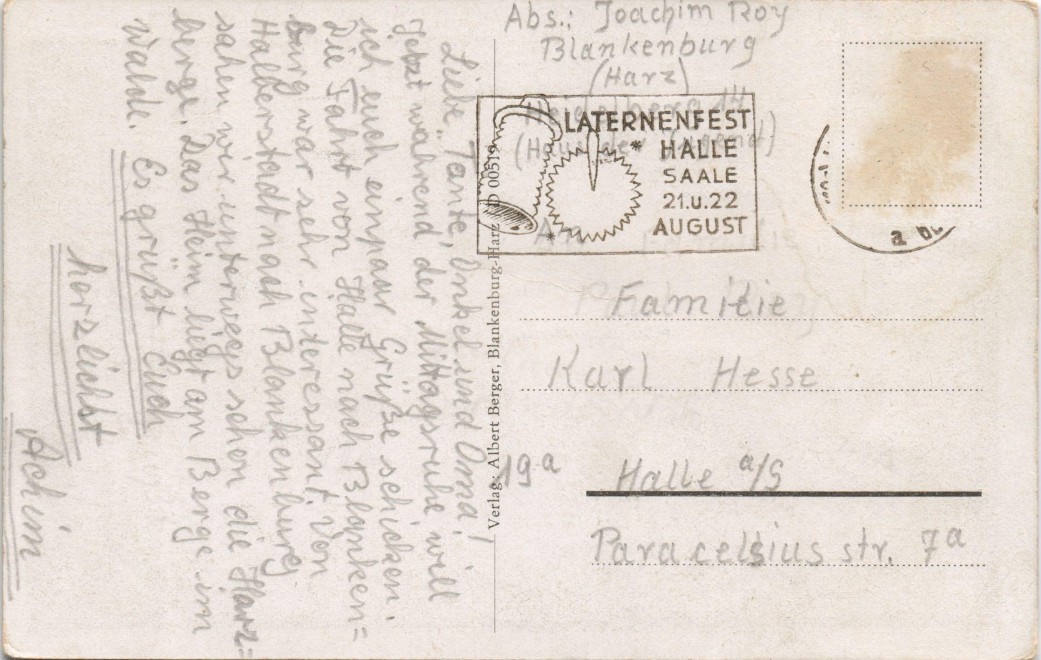 Liebe Tante, Onkel und Oma!
Jetzt während der Mittagsruhe will
ich euch einpaar Grüße schicken.
Die Fahrt von Halle nach Blanken=
burg war sehr interessant. Von
Halberstadt nach Blankenburg
sahen wir unterwegs schon die Harz=
berge. Das Heim liegt am Berge im
Walde. Es grüßt Euch
herzlichst
Achim
Verlag: Albert Berger, Blankenburg-Harz D 00519
Abs.: Joachim Roy
Blankenburg
(Harz)
Heidelberg 14
(Haus der Jugend)
LATERNENFEST
* HALLE
SAALE
21.u.22
AUGUST
a
An
Familie
Karl Hesse
19a Halle a/S
Paracelsius str. 7a